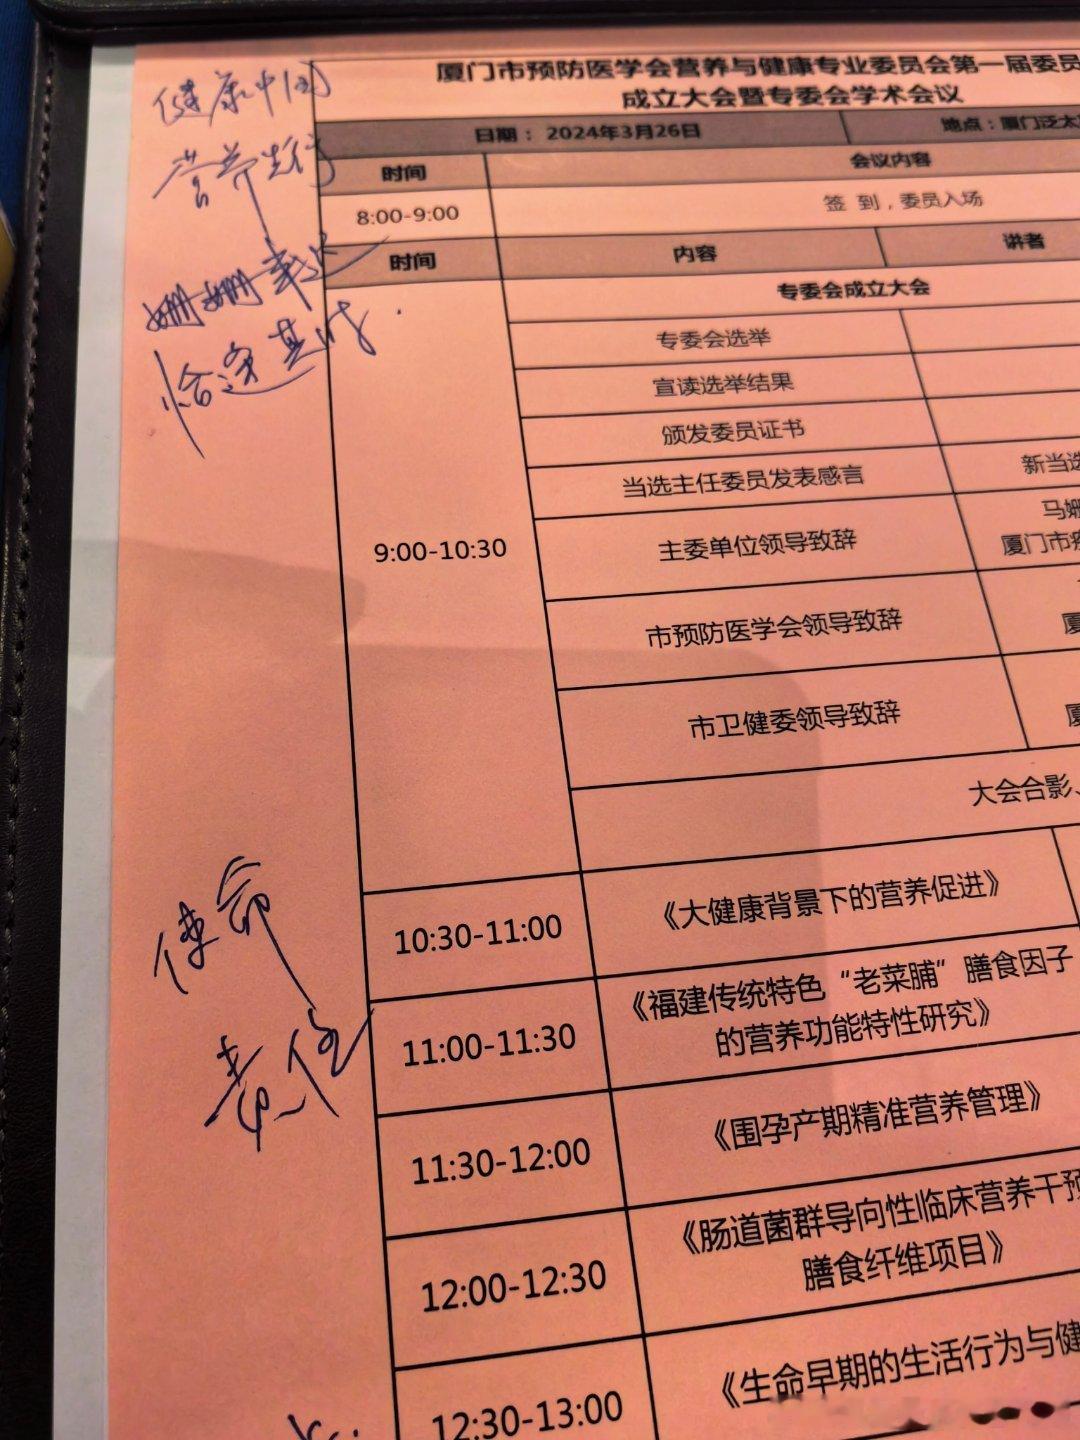 厦门市预防医学会营养与健康专业委员会第一届委员
成立大会暨专委会学术会议
日期： 2024年3月26日
地点：厦门泛太
时间
会议内容
8:00-9:00
签 到，委员入场
时间
内容
讲者
专委会成立大会
9:00-10:30
专委会选举
宣读选举结果
颁发委员证书
当选主任委员发表感言
新当选
主委单位领导致辞
马姗
厦门市疾
市预防医学会领导致辞
厦
市卫健委领导致辞
厦
大会合影、
10:30-11:00
《大健康背景下的营养促进》
11:00-11:30
《福建传统特色“老菜脯”膳食因子
的营养功能特性研究》
11:30-12:00
《围孕产期精准营养管理》
12:00-12:30
《肠道菌群导向性临床营养干预
膳食纤维项目》
12:30-13:00
《生命早期的生活行为与健
健康中国
营养先行
姗姗来迟
恰逢其时.
使命
责任